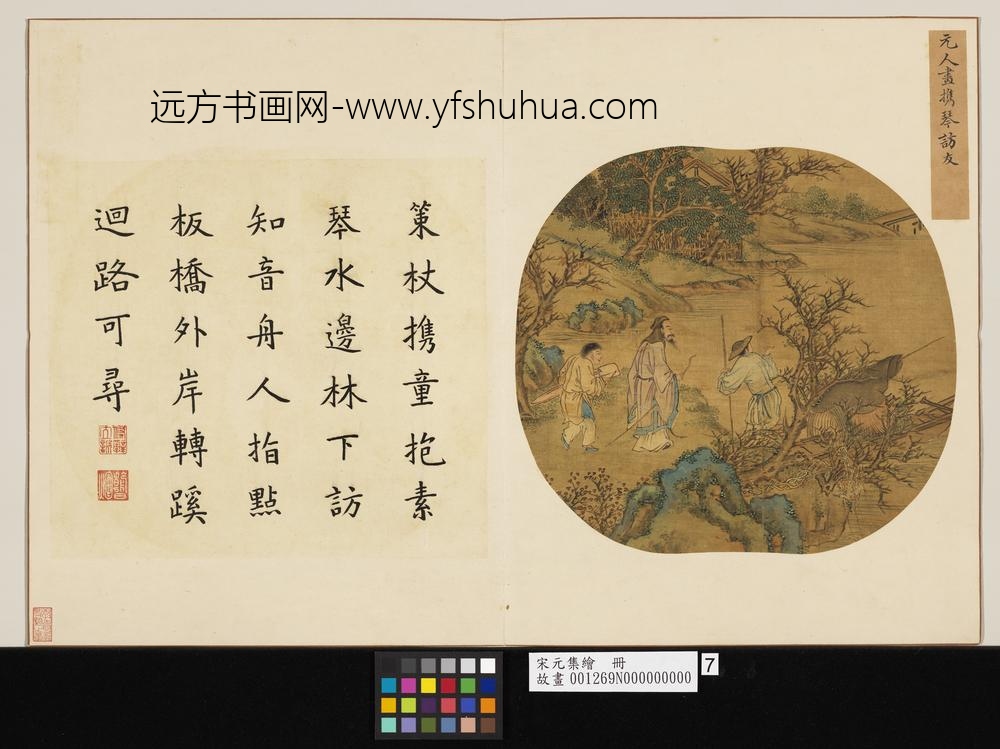 远方书画网-www.yfshuhua.com
元人畫携琴訪友
策杖携童抱素
琴水邊林下訪
知音舟人指點
板橋外岸轉蹊
迴路可尋
宋元集繪　冊
故畫 001269N000000000
7